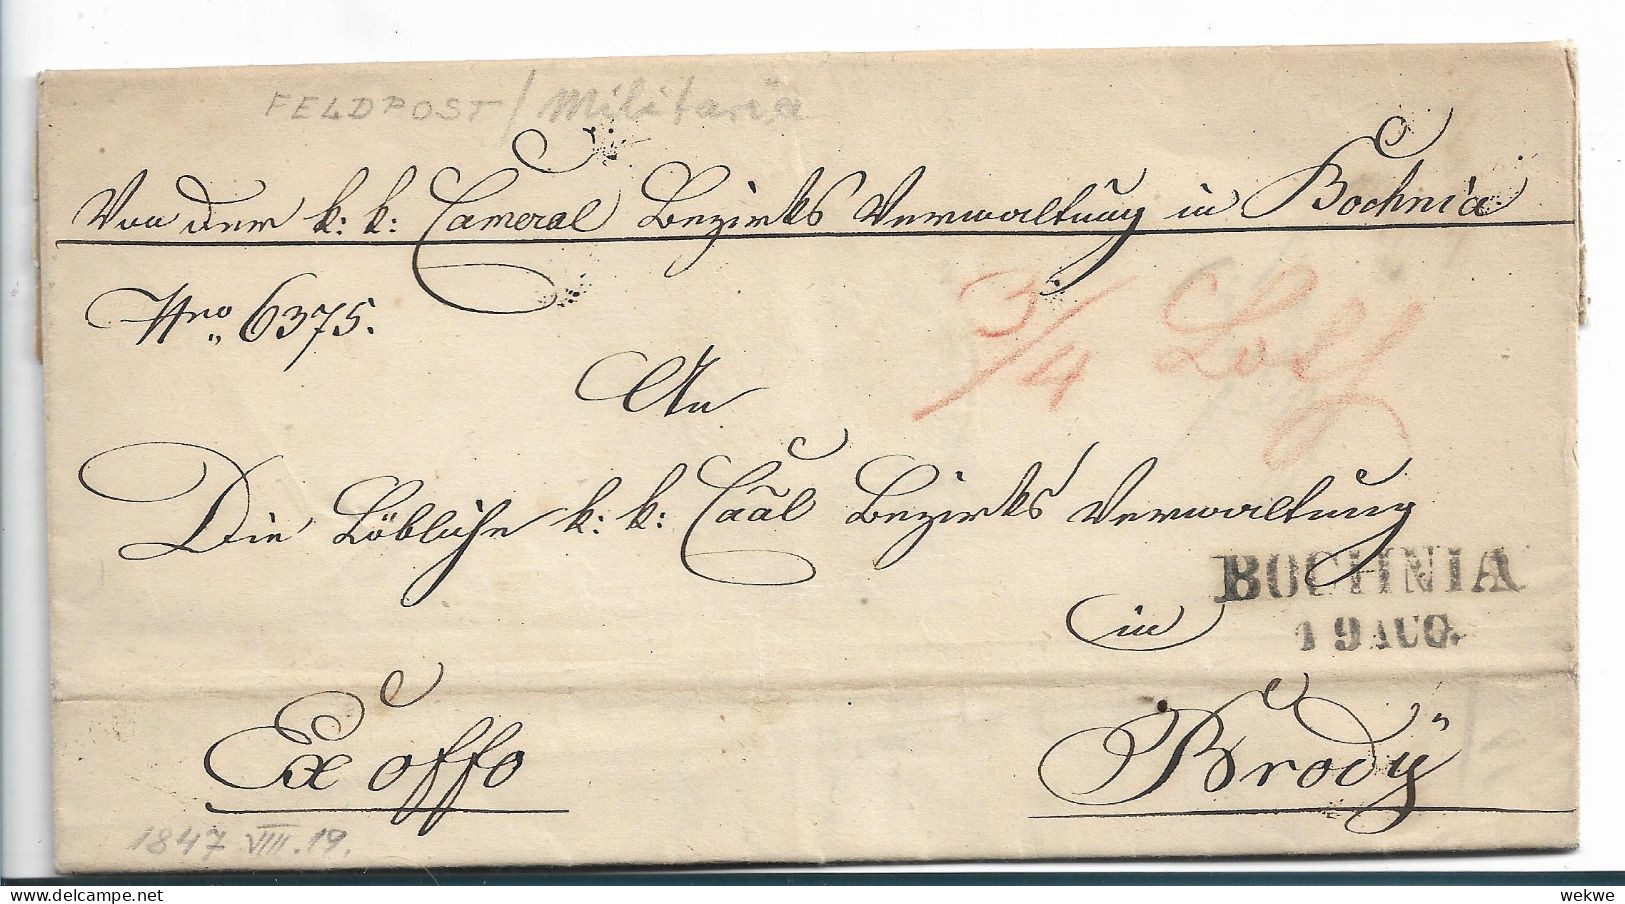 FELDPOST / Militaria
Von der k: k: Cameral Bezirks Verwaltung in Bochnia
Nro 6375.
3/4 Loth
An
Die Löbliche k: k: Caal Bezirks Verwaltung
BOCHNIA
in
19 AUG.
Ex offo
Brody
1847 VIII. 19.
wekwe